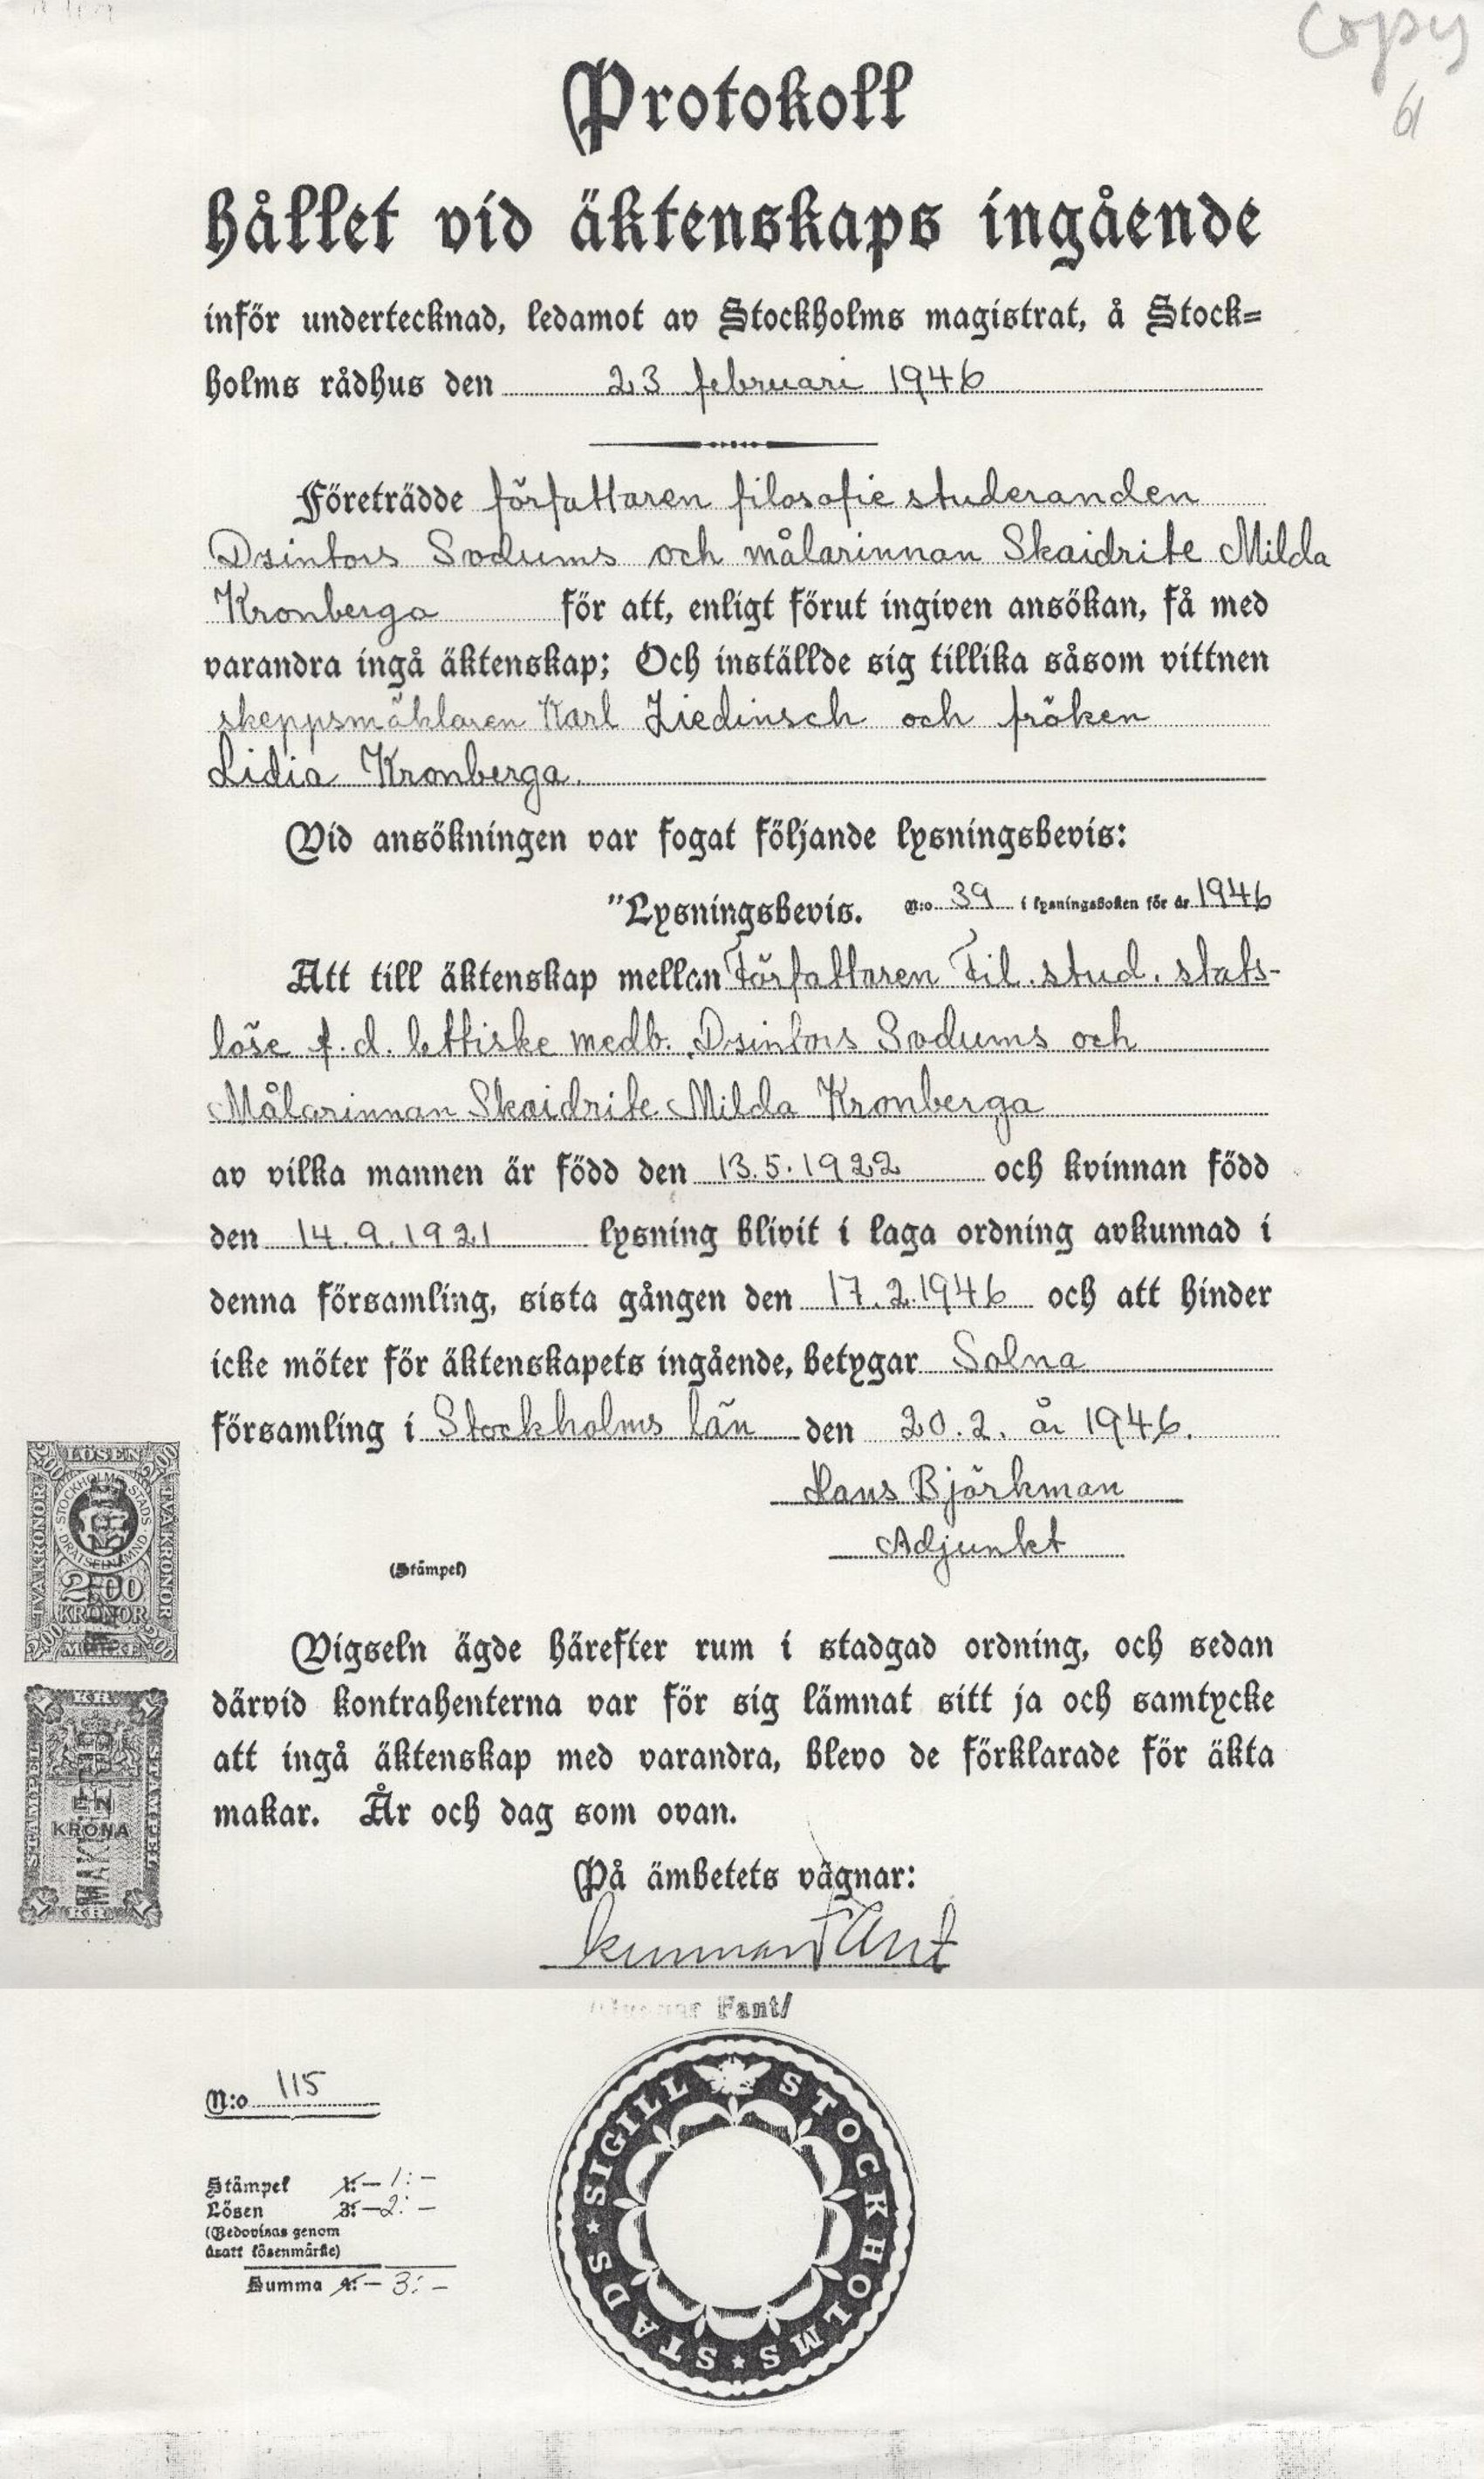 Copy
61
Protokoll
hållet vid äktenskaps ingående
inför undertecknad, ledamot av Stockholms magistrat, å Stock=
holms rådhus den 23 februari 1946
Företrädde författaren filosofie studeranden
Dzintars Sodums och målarinnan Skaidrite Milda
Kronberga för att, enligt förut ingiven ansökan, få med
varandra ingå äktenskap; Och inställde sig tillika såsom vittnen
skeppsmäklaren Karl Ziedinsch och fröken
Lidia Kronberga.
Vid ansökningen var fogat följande lysningsbevis:
"Lysningsbevis. N:o 39 i lysningsboken för år 1946
Att till äktenskap mellan Författaren Fil. stud. stats-
löse f.d. lettiske medb. Dzintars Sodums och
Målarinnan Skaidrite Milda Kronberga
av vilka mannen är född den 13.5.1922 och kvinnan född
den 14.9.1921 lysning blivit i laga ordning avkunnad i
denna församling, sista gången den 17.2.1946 och att hinder
icke möter för äktenskapets ingående, betygar Solna
församling i Stockholms län den 20.2. år 1946.
Hans Björkman
Adjunkt
(Stämpel)
LÖSEN
TVÅ KRONOR
TVÅ KRONOR
STOCKHOLMS STADS
DRÄTSELNÄMND
2.00
KRONOR
KR.
STÄMPEL
STÄMPEL
EN
KRONA
KR.
Vigseln ägde härefter rum i stadgad ordning, och sedan
därvid kontrahenterna var för sig lämnat sitt ja och samtycke
att ingå äktenskap med varandra, blevo de förklarade för äkta
makar. År och dag som ovan.
På ämbetets vägnar:
Gunnar Fant
Gunnar Fant/
N:o 115
Stämpel 1:— 1:—
Lösen 3:— 2:—
(Redovisas genom
åsatt lösenmärke)
Summa 4:— 3:—
STOCKHOLMS STADS SIGILL